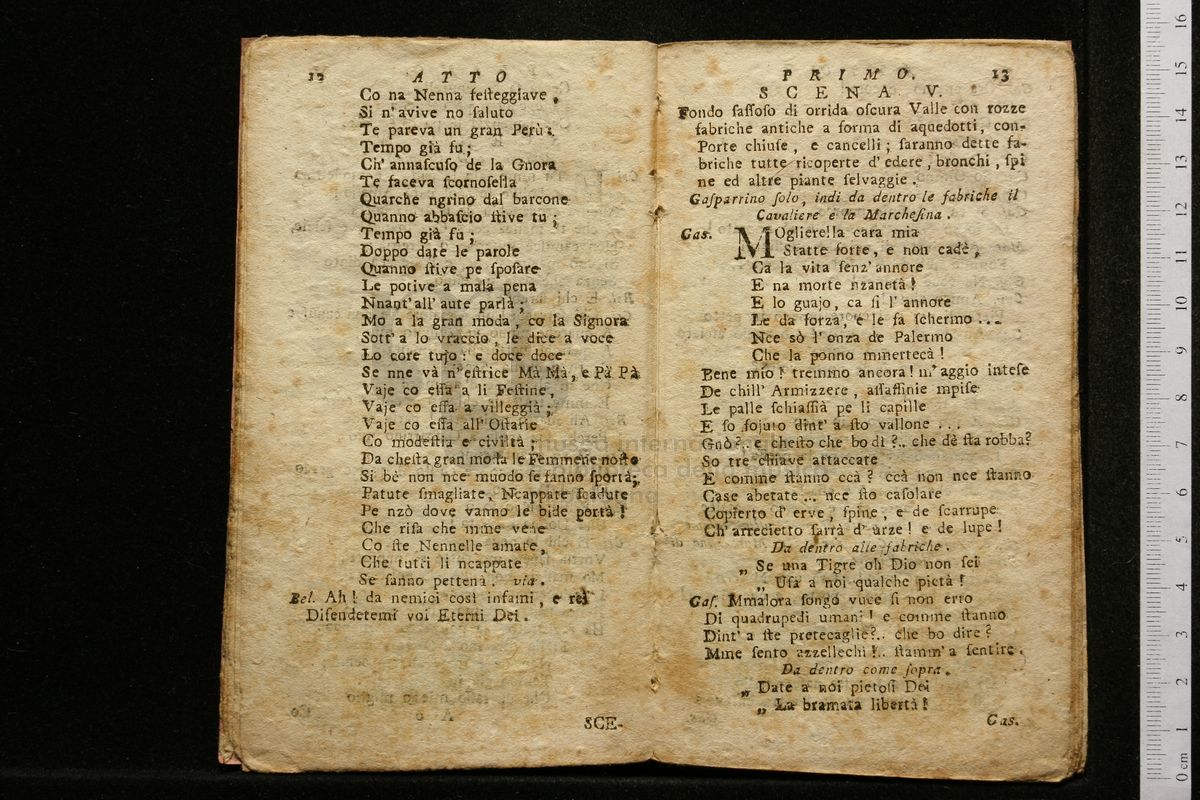 12 ATTO
Co na Nenna feſteggiave,
Si n' avive no ſaluto
Te pareva un gran Perù:
Tempo già fu;
Ch' annaſcuſo de la Gnora
Te faceva ſcornoſella
Quarche ngrino dal barcone
Quanno abbaſcio ſtive tu;
Tempo già fu;
Doppo date le parole
Quanno ſtive pe ſpoſare
Le potive a mala pena
Nnant' all' aute parlà;
Mo a la gran moda, co la Signora
Sott' a lo vraccio, le dice a voce
Lo core tujo: e doce doce
Se nne và n' eſtrice Mà Mà, e Pà Pà
Vaje co eſſa a li Feſtine,
Vaje co eſſa a villeggià;
Vaje co eſſa all' Oſtarie
Co modeſtia e civiltà;
Da cheſta gran moda le Femmene noſte
Si bè non nce muodo ſe fanno ſportà;
Patute ſmagliate, Ncappate ſcadute
Pe nzò dove vanno le bide portà!
Che riſa che mme vene
Co ſte Nennelle amate,
Che tutti li ncappate
Se fanno pettenà. via.
Bel. Ah! da nemici così infami, e rei
Difendetemi voi Eterni Dei.
SCE-
PRIMO. 13
SCENA V.
Fondo ſaſſoſo di orrida oſcura Valle con rozze
fabriche antiche a forma di aquedotti, con-
Porte chiuſe, e cancelli; ſaranno dette fa-
briche tutte ricoperte d' edere, bronchi, ſpi
ne ed altre piante ſelvaggie.
Gaſparrino ſolo, indi da dentro le fabriche il
Cavaliere e la Marcheſina.
Gas. MOglierella cara mia
Statte forte, e non cadè,
Ca la vita ſenz' annore
E na morte nzanetà!
E lo guajo, ca ſi l' annore
Le da forza, e le fa ſchermo ...
Nce sò l' onza de Palermo
Che la ponno mmertecà!
Bene mio! tremmo ancora! m' aggio inteſe
De chill' Armizzere, aſſaſſinie mpiſe
Le palle ſchiaſſià pe li capille
E ſo fojuto dint' a ſto vallone ...
Gnò?.. e cheſto che bo dì?.. che dè ſta robba?
So tre chiave attaccate
E comme ſtanno ccà? ccà non nce ſtanno
Case abetate ... nce ſto caſolare
Copierto d' erve, ſpine, e de ſcarrupe
Ch' arrecietto ſarrà d' urze! e de lupe!
Da dentro alle fabriche.
„ Se una Tigre oh Dio non ſei
„ Uſa a noi qualche pietà!
Gaſ. Mmalora ſongo vuce ſi non erro
Di quadrupedi umani! e comme ſtanno
Dint' a ſte pretecaglie?.. che bo dire?
Mme ſento azzellechì!.. ſtamm' a ſentire.
Da dentro come ſopra.
„ Date a noi pietoſi Dei
„ La bramata libertà!
Gas.